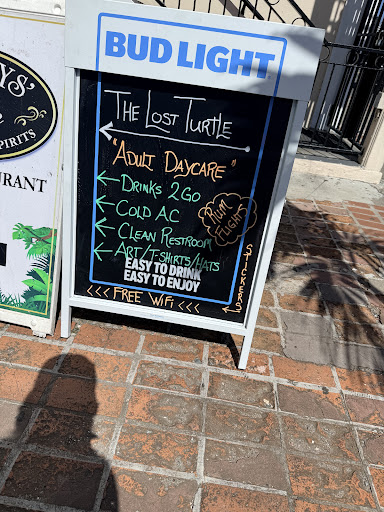 YS'
SPIRITS
URANT
BUD LIGHT
THE LOST TURTLE
"ADULT DAYCARE"
DRINKS 2GO
COLD AC
CLEAN RESTROOM
ART/T-SHIRTS/HATS
RUM
FLIGHTS
STICKERS
EASY TO DRINK
EASY TO ENJOY
<<< FREE WIFI <<<